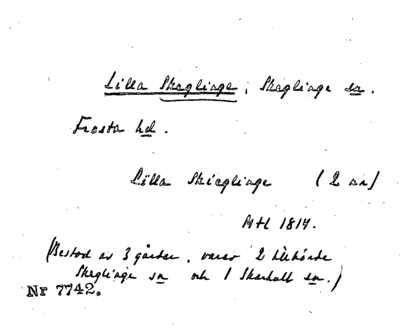 Lilla Skeglinge, Skeglinge sn.
Frosta hd.
Lilla Skieglinge (2 ar)
Mtl 1814.
(Bestod av 3 gårdar, varav 2 tillhörde
Skeglinge sn och 1 Skarhult sn.)
Nr 7742.